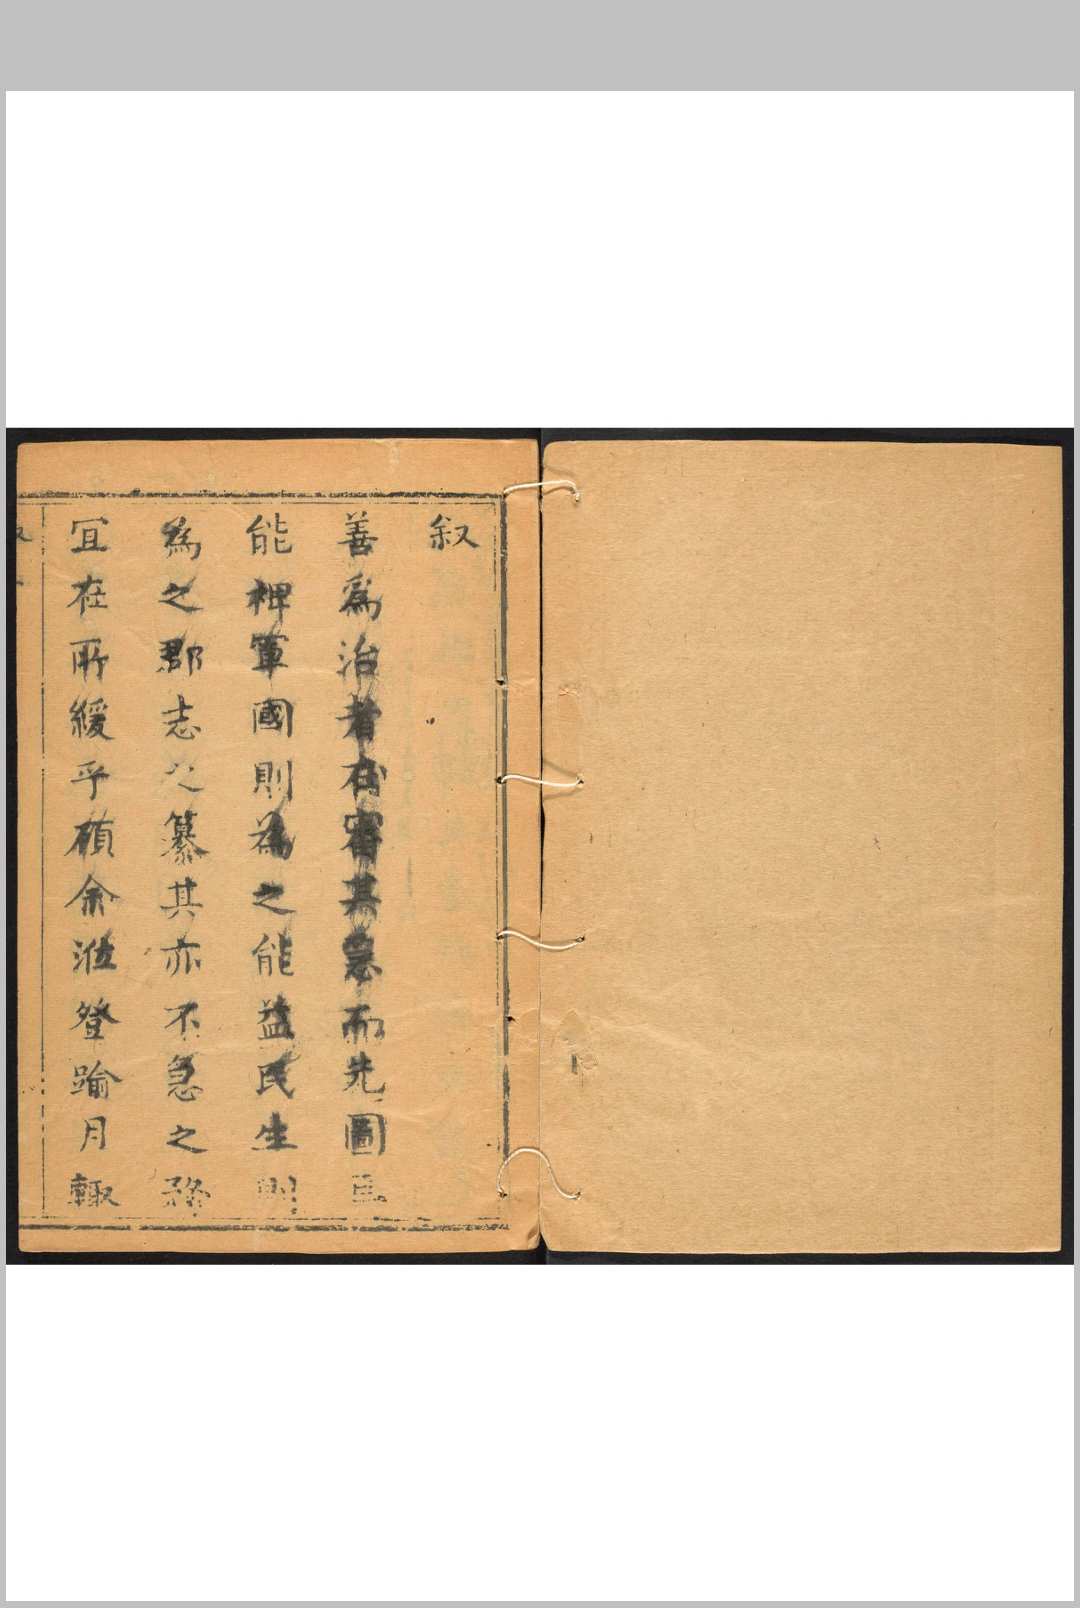 叙
善爲治者在審其急而先圖
能裨軍國則為之能益民生則
為之郡志之纂其亦不急之務
冝在所緩乎碩余涖登踰月輙